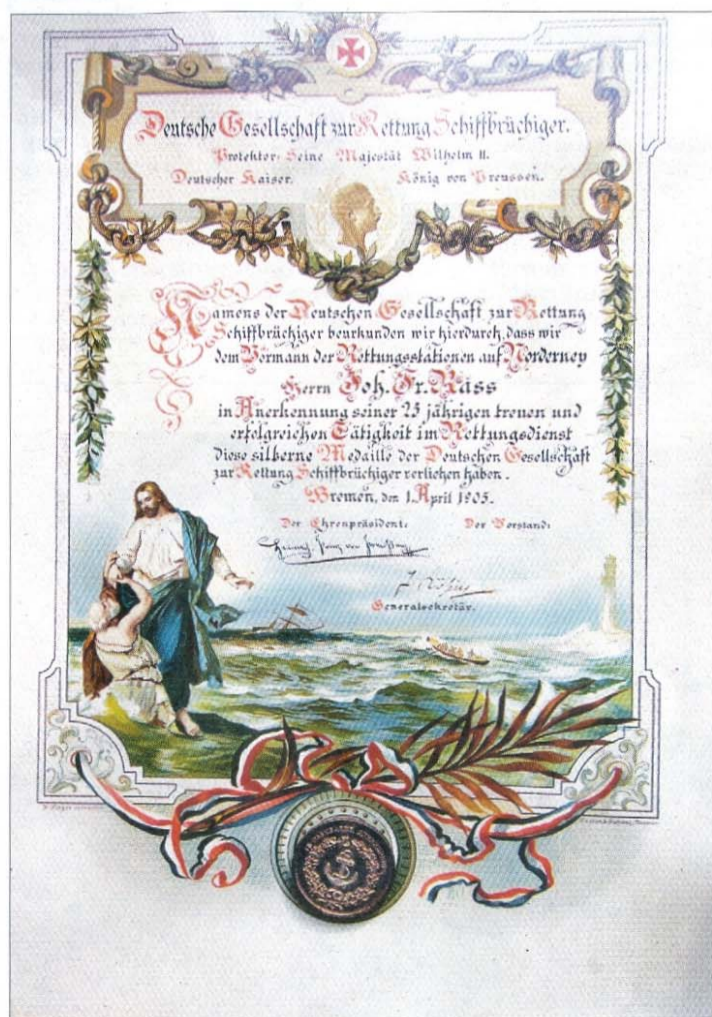 Deutsche Gesellschaft zur Rettung Schiffbrüchiger.
Protektor: Seine Majestät Wilhelm II.
Deutscher Kaiser. König von Preussen.
Namens der Deutschen Gesellschaft zur Rettung
Schiffbrüchiger beurkunden wir hierdurch, dass wir
dem Vormann der Rettungsstationen auf Norderney
Herrn Joh. Fr. Rass
in Anerkennung seiner 25 jährigen treuen und
erfolgreichen Tätigkeit im Rettungsdienst
diese silberne Medaille der Deutschen Gesellschaft
zur Rettung Schiffbrüchiger verliehen haben.
Bremen, den 1. April 1905.
Der Ehrenpräsident: Der Vorstand:
Generalsekretär.